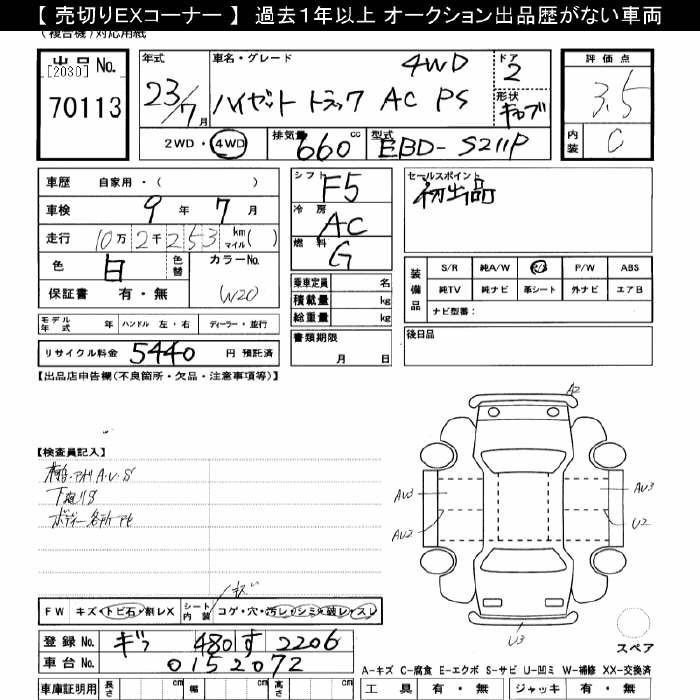 【 売切りEXコーナー 】 過去1年以上 オークション出品歴がない車両
(複合機)対応用紙
出品 No.
[2030]
70113
年式
23/7月
車名・グレード
4WD
ハイゼット トラック AC PS
ドア
2
形状
キャブ
評価点
3.5
内装
C
2WD・4WD
排気量
660 cc
型式
EBD-S211P
車歴 自家用・( )
車検 9 年 7 月
走行 10万 2千 2 5 3 km マイル( )
色 白 色替 カラーNo.
保証書 有・無 W20
シフト F5
冷房 AC
燃料 G
乗車定員 名
積載量 kg
総重量 kg
書類期限
月 日
セールスポイント
初出品
装備品
S/R 純A/W P/S P/W ABS
純TV 純ナビ 革シート 外ナビ エアB
ナビ型番:
後日品
モデル年式 年 ハンドル 左・右 ディーラー・並行
リサイクル料金 5440 円 預託済
【出品店申告欄(不良箇所・欠品・注意事項等)】
【検査員記入】
下廻りS
ボディー各所
A2
AU3
AU3
AU2
U2
U3
スペア
キズ
FW キズ・トビ石・割レX シート内装 コゲ・穴・汚レ・シミ・破レ・スレ
登録 No. ギフ 480 す 2206
車台 No. 0152072
A-キズ C-腐食 E-エクボ S-サビ U-凹ミ W-補修 XX-交換済
車庫証明用 長さ cm 幅 cm 高さ cm
工具 有・無 ジャッキ 有・無